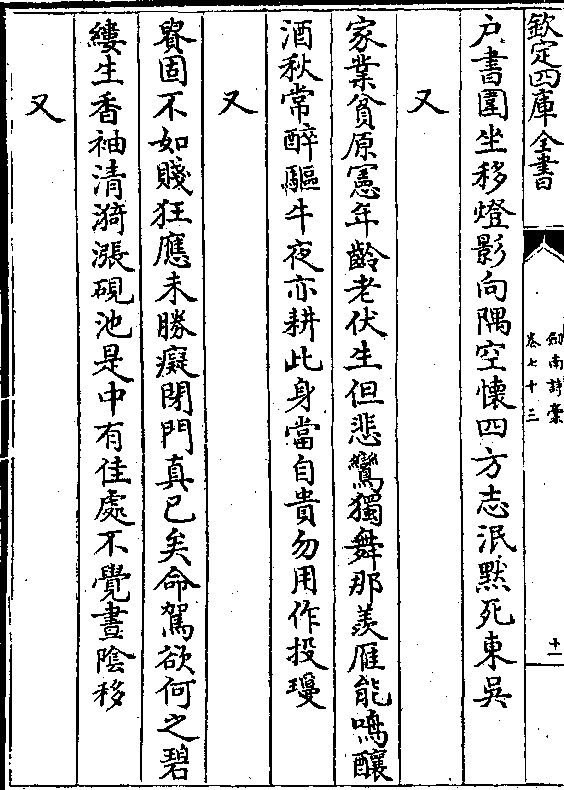 欽定四庫全書
劍南詩藁
卷七十三
十一
户書圍坐移燈影向隅空懷四方志泯黙死東吳
又
家業貧原憲年齡老伏生但悲鸞獨舞那羨雁能鳴釀
酒秋常醉驅牛夜亦耕此身當自貴勿用作投瓊
又
貴固不如賤狂應未勝癡閉門真已矣命駕欲何之碧
縷生香袖清漪漲硯池是中有佳處不覺晝陰移
又